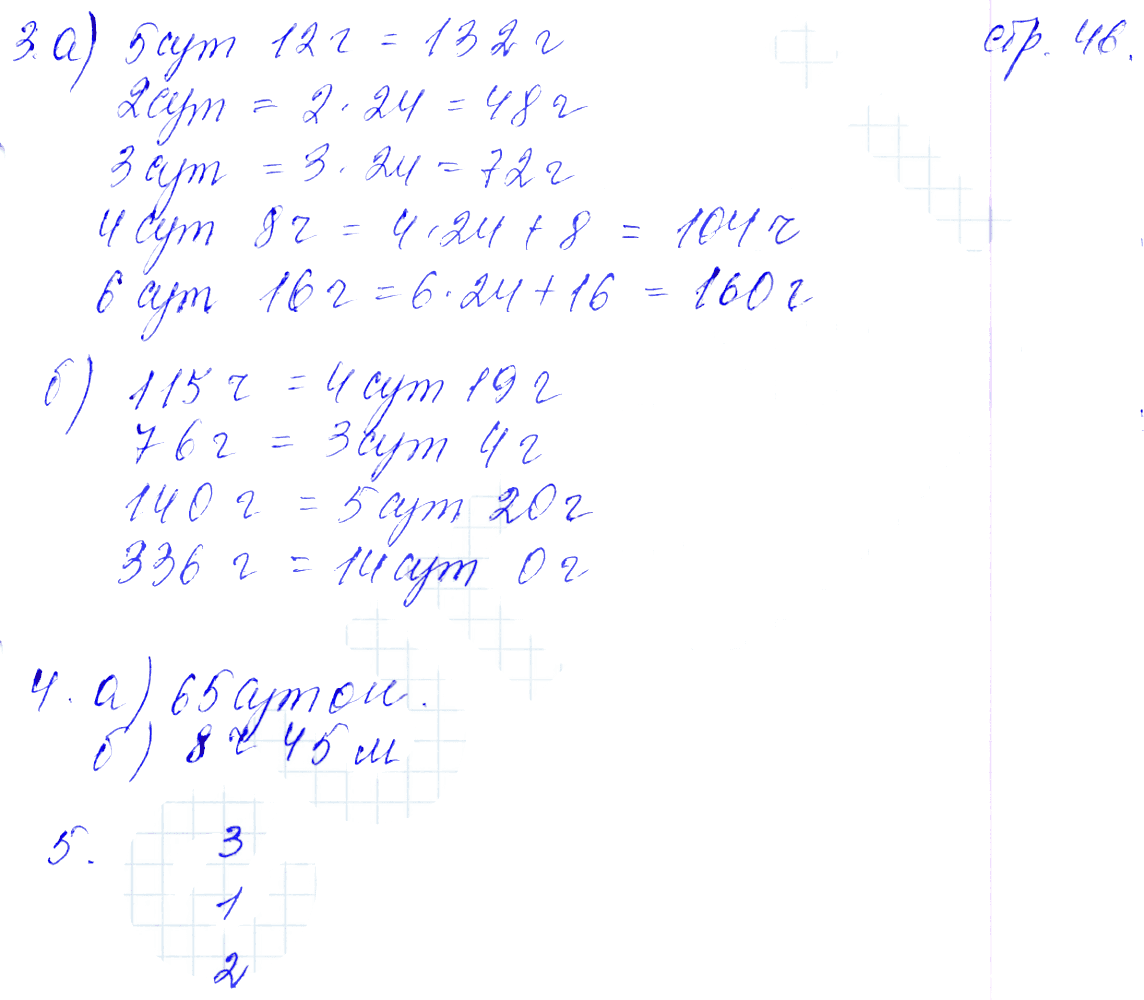 стр. 46.
3. а) 5 сут 12 ч = 132 ч
2 сут = 2 · 24 = 48 ч
3 сут = 3 · 24 = 72 ч
4 сут 8 ч = 4 · 24 + 8 = 104 ч
6 сут 16 ч = 6 · 24 + 16 = 160 ч
б) 115 ч = 4 сут 19 ч
76 ч = 3 сут 4 ч
140 ч = 5 сут 20 ч
336 ч = 14 сут 0 ч
4. а) 65 суток.
б) 8 ч 45 м
5. 3
1
2